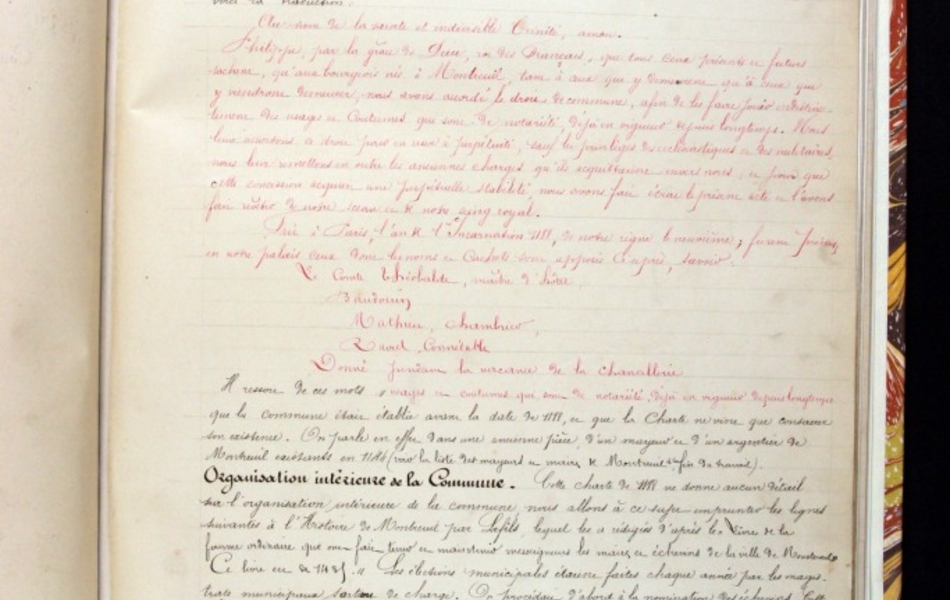 voici la traduction :
Au nom de la sainte et indivisible Trinité, amen.
Philippe, par la grâce de Dieu, roi des Français, que tous ceux présents et futurs
sachent, qu'aux bourgeois nés à Montreuil, tant à ceux que y demeurent qu'à ceux que
y viendront demeurer, nous avons accordé le droit de commune, afin de les faire jouir
des usages et Coutumes que sont de notoriété, déjà en vigueur depuis longtemps. Nous
leur accordons ce droit pour en user à perpétuité, sauf les privilèges des ecclésiastiques et des militaires,
nous leur remettons en outre les anciennes charges qu'ils acquittaient envers nous, et pour que
cette concession acquière une perpétuelle stabilité, nous avons fait écrire le présent acte et l'avons
fait revêtir de notre sceau et de notre seing royal.
Fait à Paris, l'an de l'Incarnation 1188, de notre règne le neuvième ; furent présens,
en notre palais ceux dont les noms et Cachets sont apposés ci après, savoir.
Le Comte Thiébalde, maître d'hôtel
Baudouin
Mathieu, chambrier,
Raoul, Connétable
Donné pendant la vacance de la chancellerie
Il ressort de ces mots, usages et coutumes qui sont de notoriété, déjà en vigueur depuis longtemps
que la commune était établie avant la date de 1188, et que la Charte ne vint que consacrer
son existence. On parle en effet dans une ancienne pièce, d'un mayeur et d'un argentier de
Montreuil existants en 1186 (voir la liste des mayeurs et maires de Montreuil fin du travail).
Organisation intérieure de la Commune. Cette charte de 1188 ne donne aucun détail
sur l'organisation intérieure de la commune, nous allons à ce sujet emprunter les lignes
suivantes à l'Histoire de Montreuil par Lefils, lequel les a rédigées d'après le Livre de la
forme ordinaire que ont fait tenir et maintenir messeigneurs les maires et échevins de la ville de Montreuil
Ce livre est de Les élections municipales étaient faites chaque année par les magis-
trats municipaux sortant de charge. On procédait d'abord à la nomination des échevins.